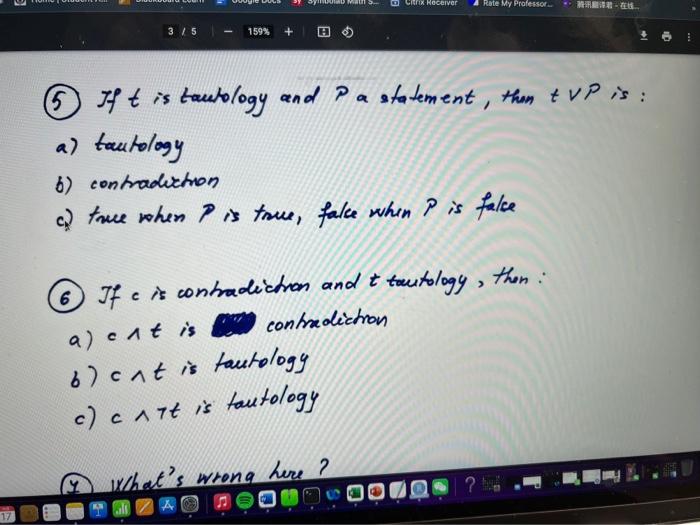 Citrix Receiver
Rate My Professor...
3 / 5 — 159% +
⑤ If t is tautology and P a statement, then t ∨ P is :
a) tautology
b) contradiction
c) true when P is true, false when P is false
⑥ If c is contradiction and t tautology, then :
a) c ∧ t is contradiction
b) c ∧ t is tautology
c) c ∧ ┐t is tautology
What's wrong here ?
17